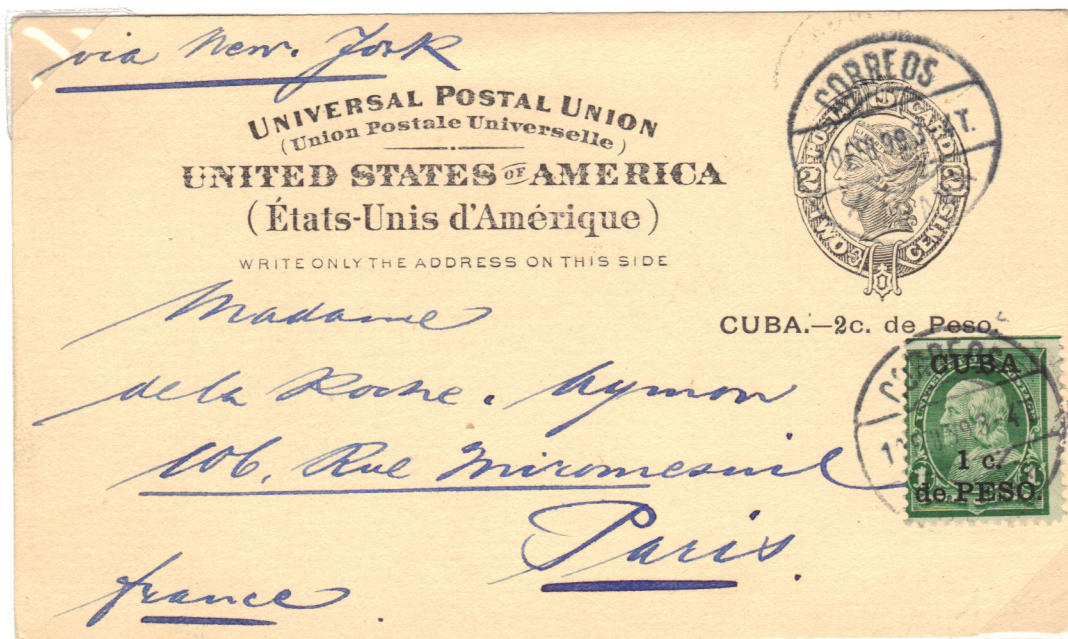 via New. York
UNIVERSAL POSTAL UNION
(Union Postale Universelle)
UNITED STATES OF AMERICA
(États-Unis d'Amérique)
WRITE ONLY THE ADDRESS ON THIS SIDE
CORREOS
2 POSTAL CARD 2
TWO CENTS
CUBA.—2c. de Peso.
Madame
de la Roche. Aymon
106, Rue Miromesnil
Paris.
france
CORREOS
CUBA
1 c.
de PESO.